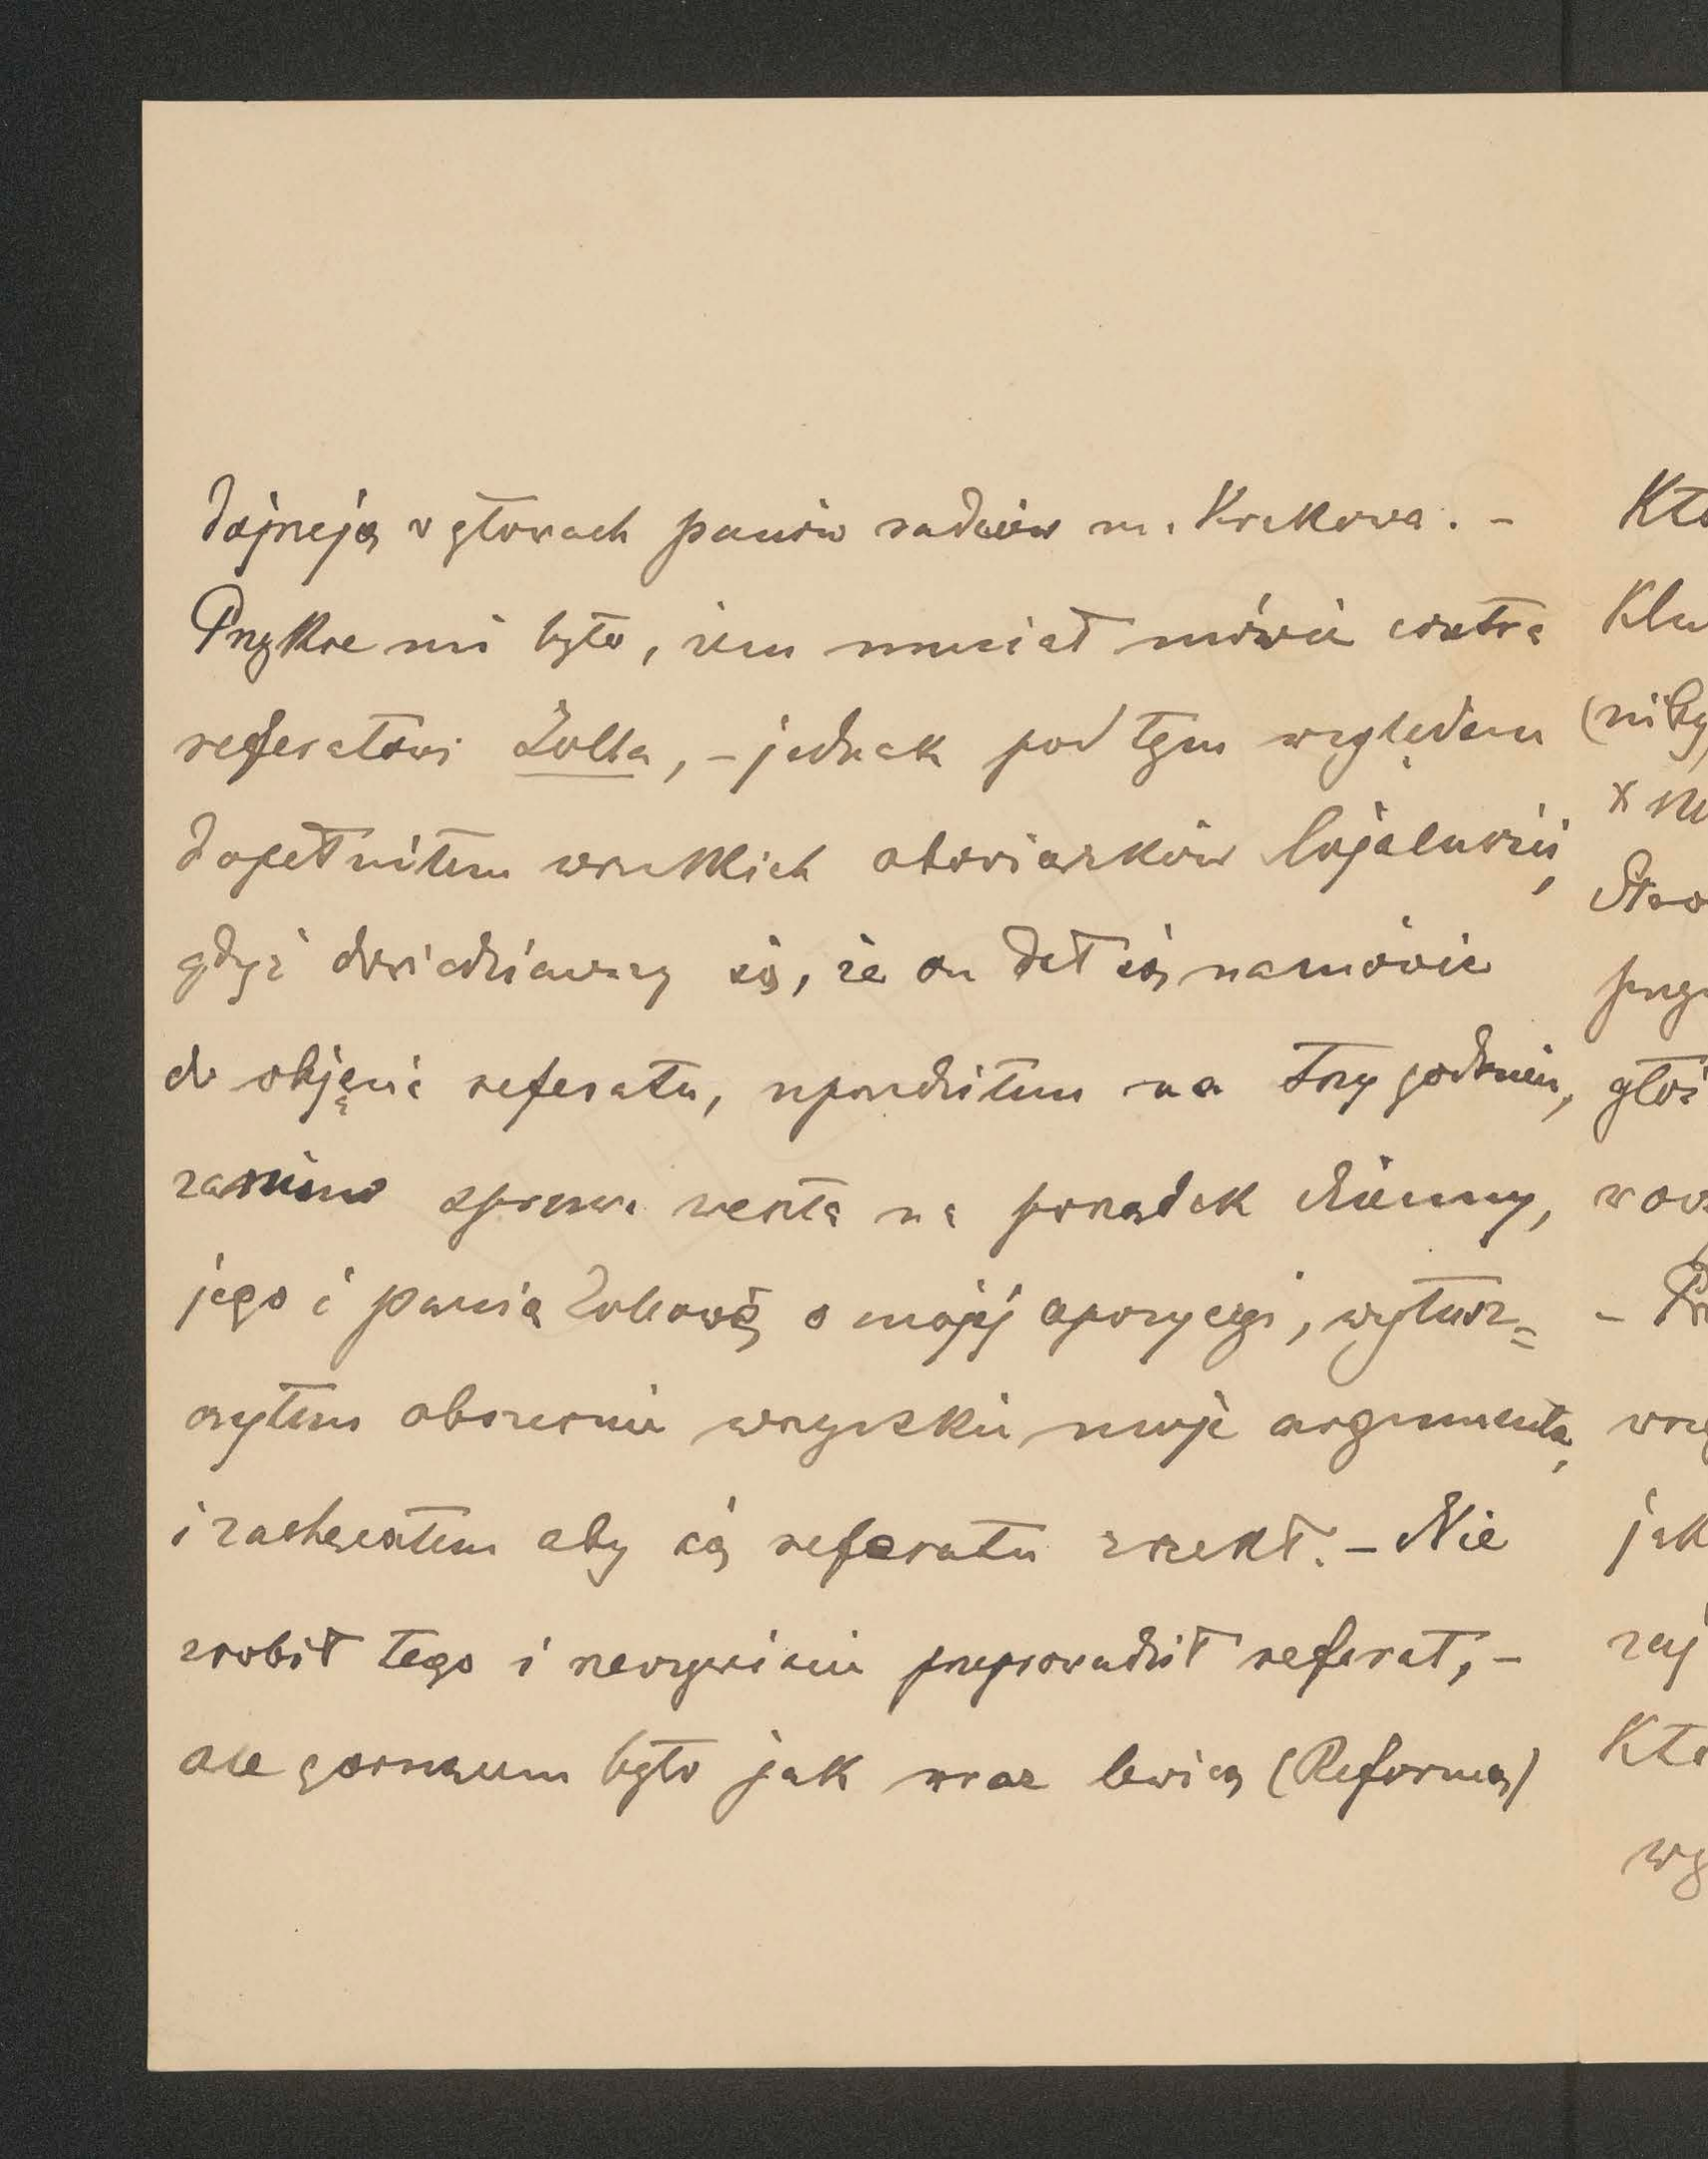 dojrzeją w głowach panów radców m. Krakowa. -
Przykre mi było, żem musiał mówić contra
referatowi Zolla, - jednak pod tym względem
dopełniłem wszelkich obowiązków lojalności,
gdyż dowiedziawszy się, że on dał się namówić
do objęcia referatu, uprzedziłem na trzy godzin,
zanim sprawa weszła na porządek dzienny,
jego i panią Zollową o mojej opozycyi, wyłusz=
czyłem obszernie wszystkie moje argumenta,
i zachęcałem aby się referatu zrzekł. - Nie
zrobił tego i rzeczywiście przeprowadził referat, -
ale było jak wraz lewicą (Reformą)
Kto
Klu
(niby
x
głoś
- Pr
jak
zaj
Kto
wy